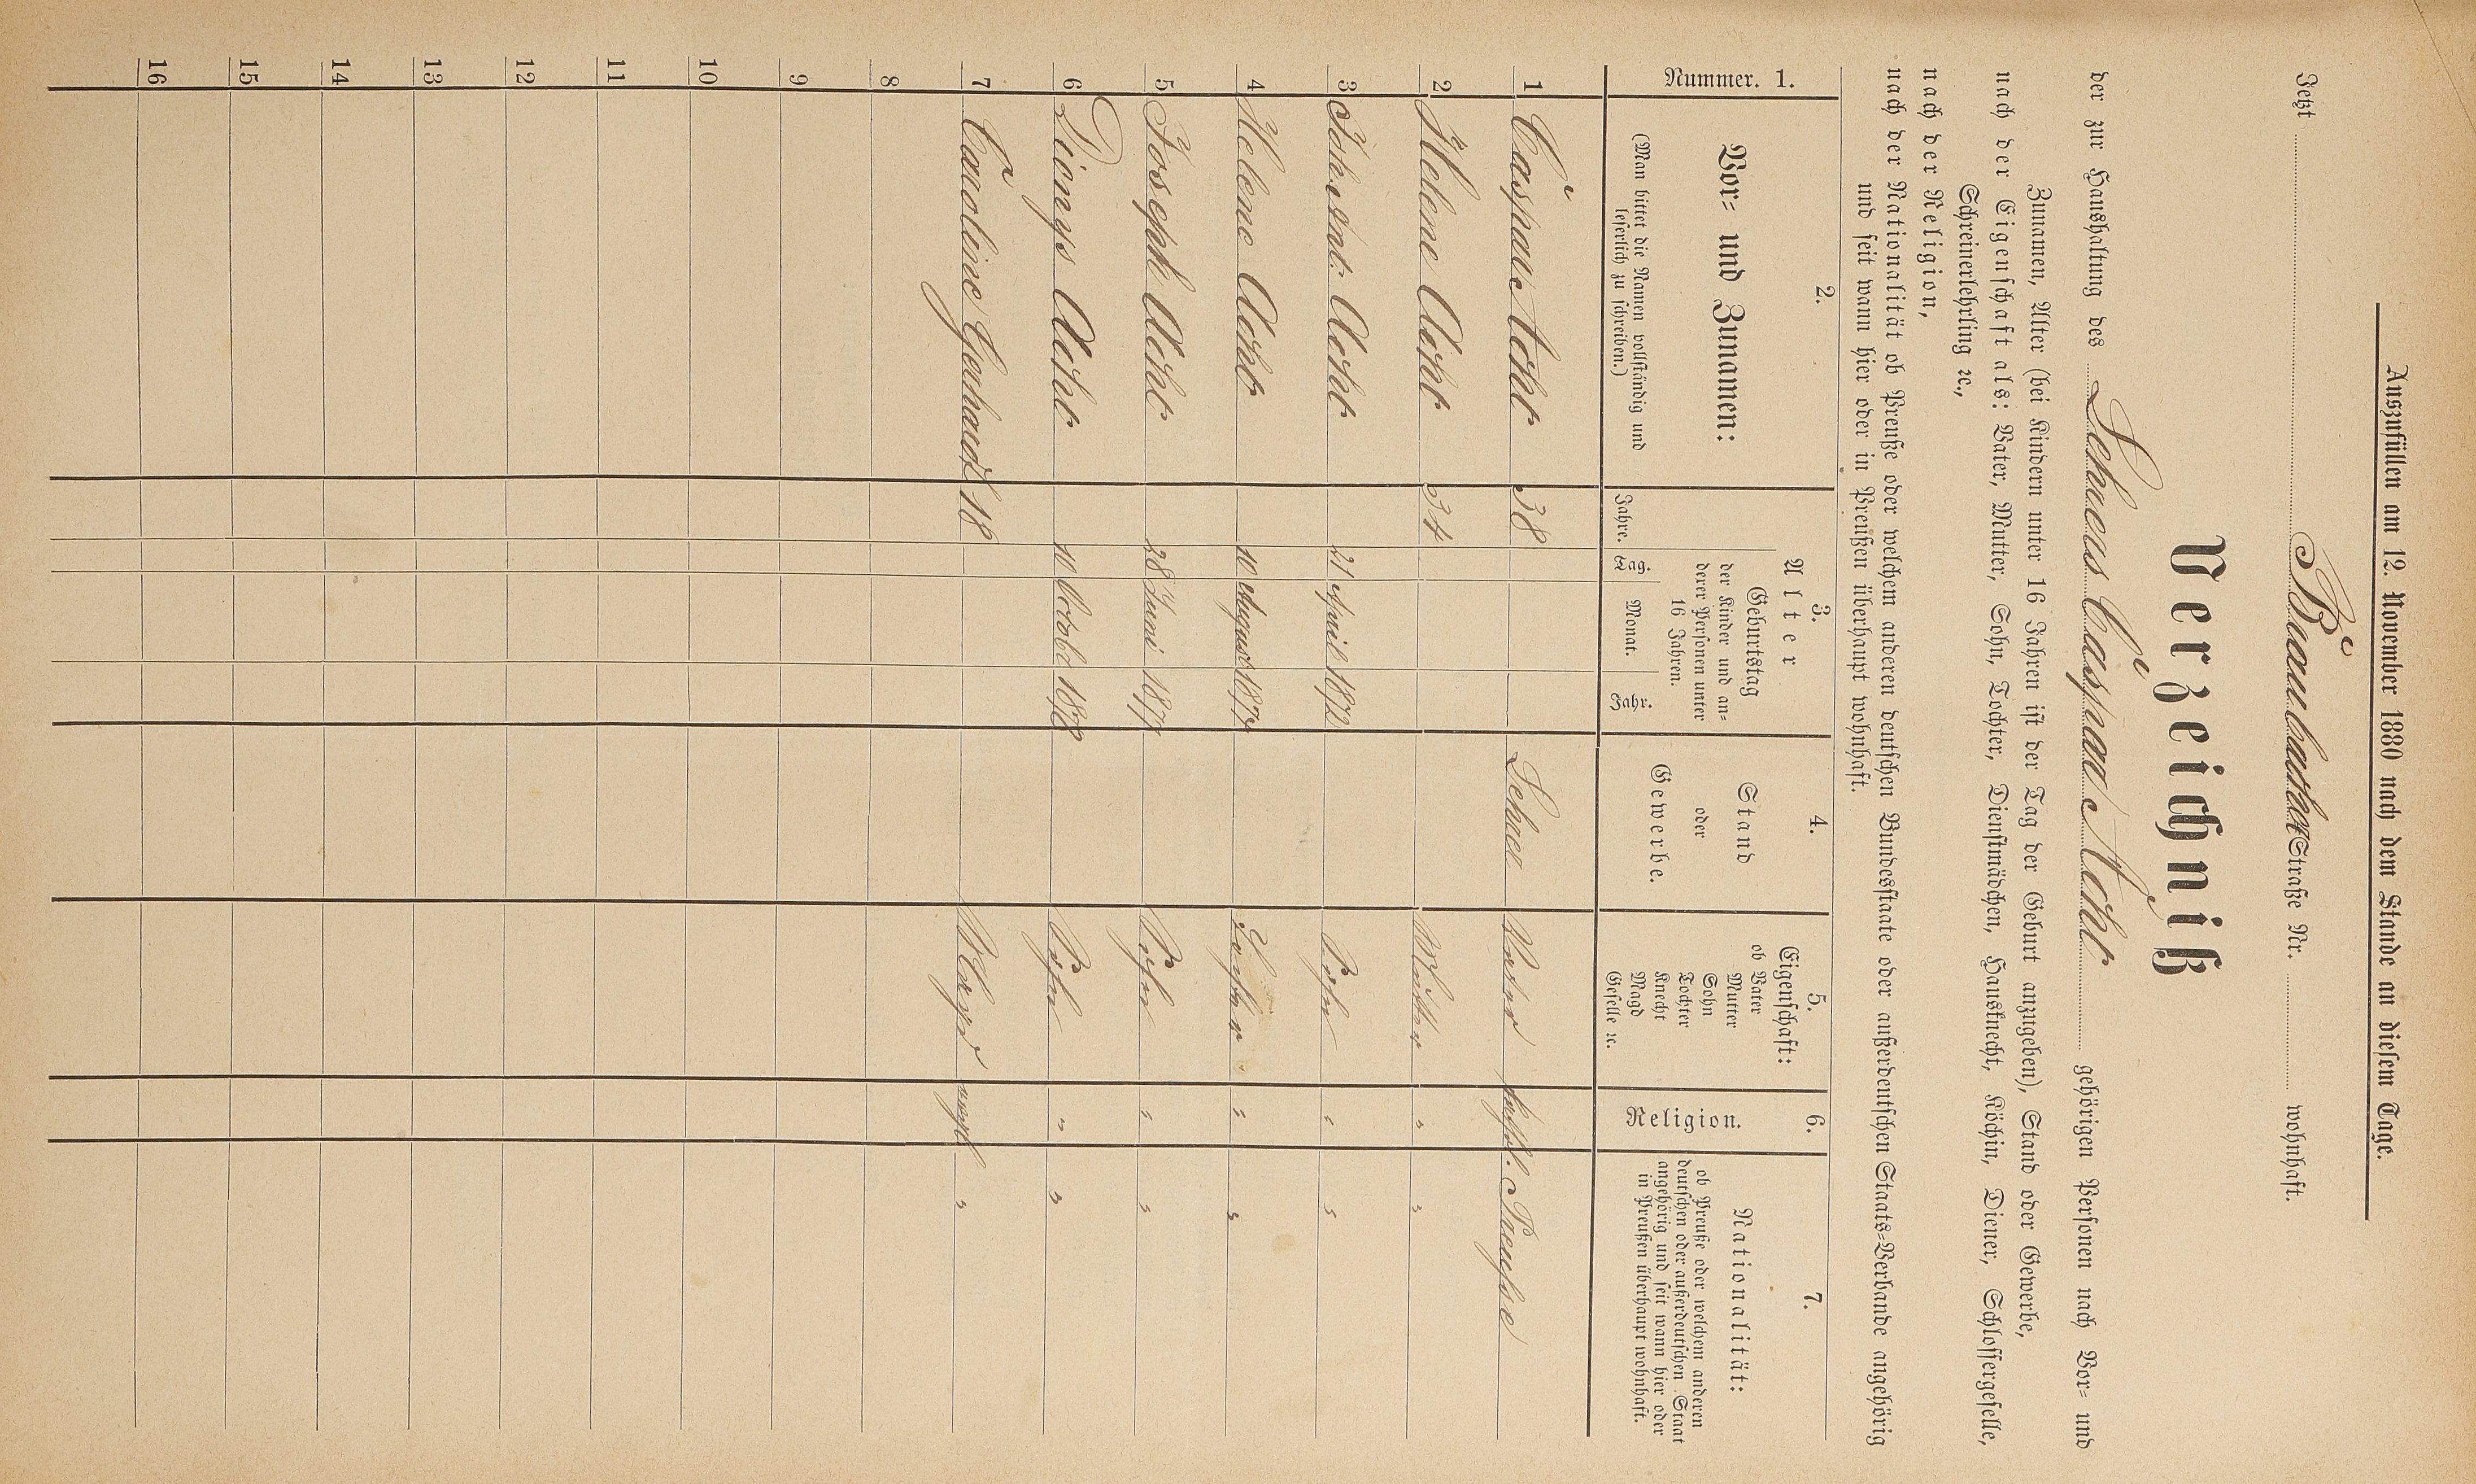 Auszufüllen am 12. November 1880 nach dem Stande an diesem Tage.
Jetzt Baumbacher Straße Nr. wohnhaft.
Verzeichniß
der zur Haushaltung des Lehrers Caspar Acht gehörigen Personen nach Vor- und
Zunamen, Alter (bei Kindern unter 16 Jahren ist der Tag der Geburt anzugeben), Stand oder Gewerbe,
nach der Eigenschaft als: Vater, Mutter, Sohn, Tochter, Dienstmädchen, Hausknecht, Köchin, Diener, Schlossergeselle,
Schreinerlehrling ꝛc.,
nach der Religion,
nach der Nationalität ob Preuße oder welchem anderen deutschen Bundesstaate oder außerdeutschen Staats-Verbande angehörig
und seit wann hier oder in Preußen überhaupt wohnhaft.
Nummer. 1.
2.
Vor- und Zunamen:
(Man bittet die Namen vollständig und
leserlich zu schreiben.)
3.
Alter
Jahre.
Geburtstag
der Kinder und an-
derer Personen unter
16 Jahren.
Tag. Monat. Jahr.
4.
Stand
oder
Gewerbe.
5.
Eigenschaft:
ob Vater
Mutter
Sohn
Tochter
Knecht
Magd
Geselle ꝛc.
6.
Religion.
7.
Nationalität:
ob Preuße oder welchem anderen
deutschen oder außerdeutschen Staat
angehörig und seit wann hier oder
in Preußen überhaupt wohnhaft.
1 Caspar Acht 38 Lehrer Vater kathl. Preusse
2 Helene Acht 34 Mutter " "
3 Acht 21 April 1872 Sohn " "
4 Helene Acht 10 August 187 Tochter " "
5 Joseph Acht 28 Juni 187 Sohn " "
6 Dionys Acht 10 Octobr 1878 Sohn " "
7 Caroline Gerhard 18 Magd evgl. "
8
9
10
11
12
13
14
15
16